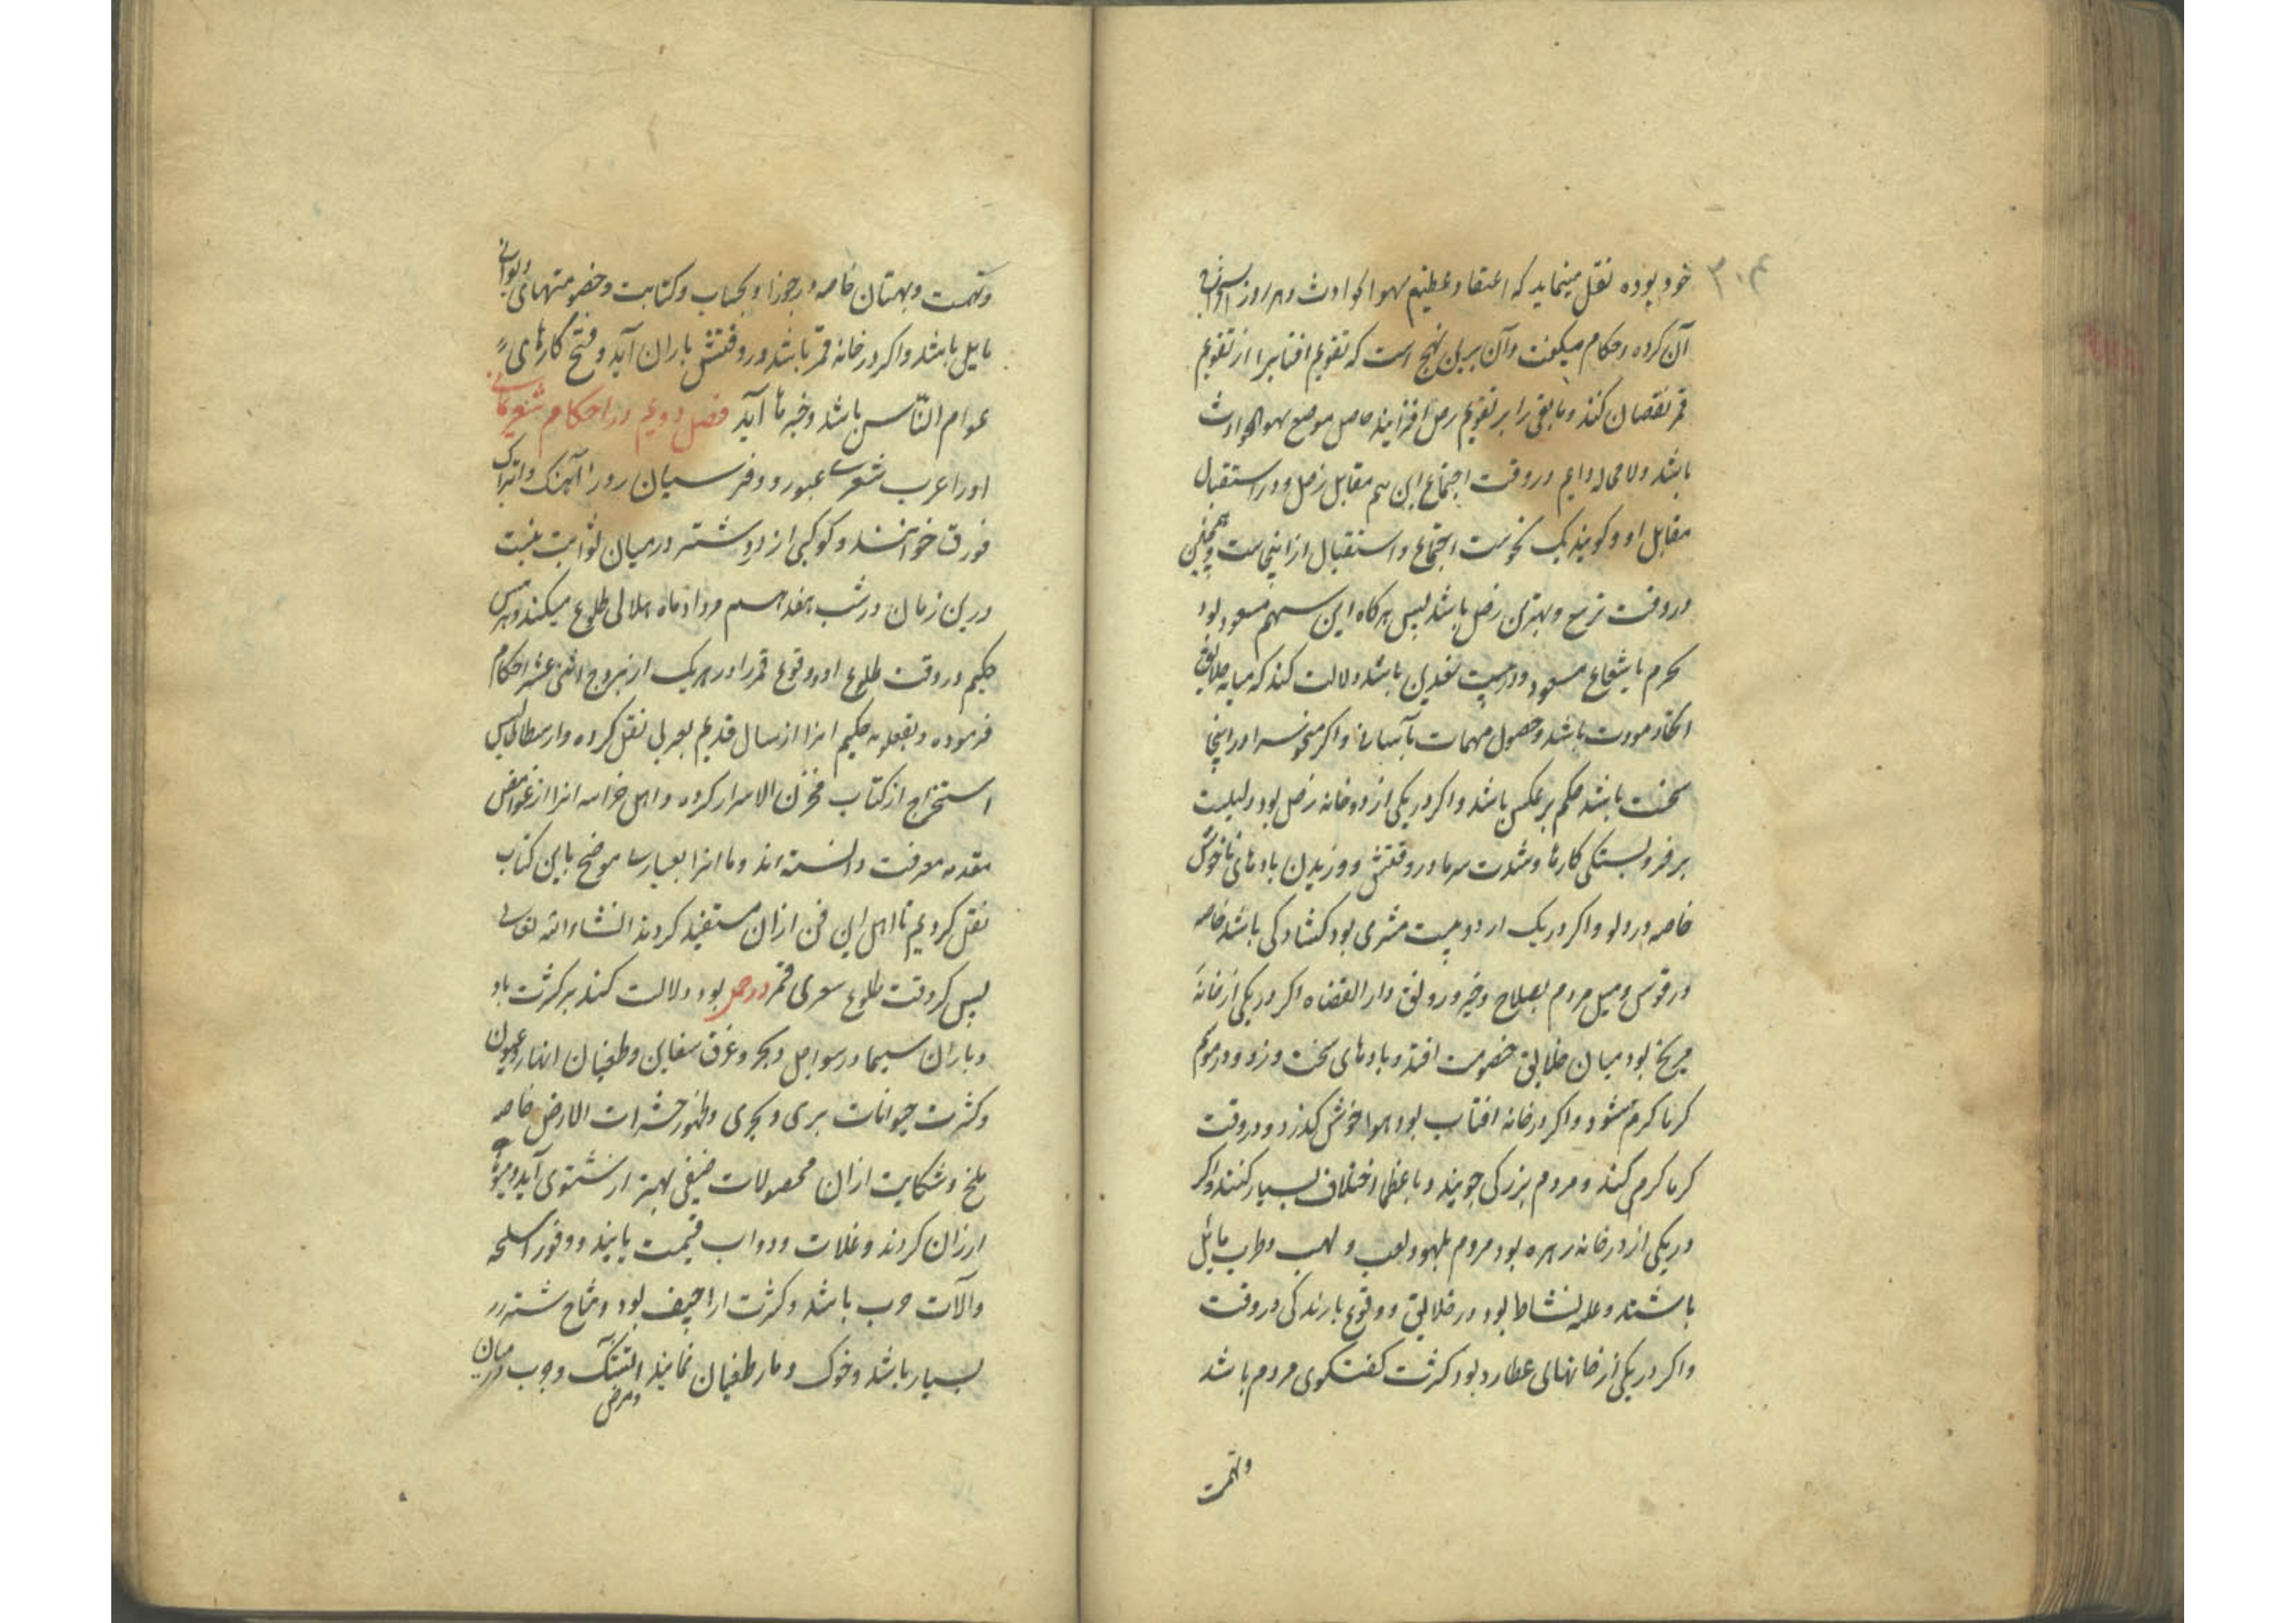 ۳۰۴
خود بوده نقل مینماید که اعتقاد عظیم بسهم الحوادث و هر روز استخراج
آن کرده و حکام میکفت و آن برین نهج است که تقویم افتابرا از تقویم
قمر نقصان کنند و مابقی را بر تقویم زحل افزایند حاصل موضع سهم الحوادث
باشد و لا محاله دایم در وقت اجتماع این سهم مقابل زحل و در استقبال
مقابل او و کویند یک نحوست اجتماع و استقبال ازاینجاست و همچنین
در وقت تربیع و بهترین زحل باشد پس هرکاه این سهم مسعود بود
بجرم یا شعاع مسعود و در بیت سعدین باشد دلالت کند که میانه خلایق
اتحاد و مودت باشد و حصول مهمات بآسانی و اکر منحوس او را اینجا
سخت باشد حکم برعکس باشد و اکر در یکی از دو خانه زحل بود دلیلست
بر فروبستکی کارها و شدت سرما در وقتش و وزیدن بادهای ناخوش
خاصه در دلو و اکر در یک از دو بیت مشتری بود کشادکی باشد خاصه
در قوس و میل مردم بصلاح و خیر و رونق دار القضاه اکر در یکی از خانهٔ
مریخ بود میان خلایق خصومت افتد و بادهای سخت وزد و در موسم
کرما کرم شود و اکر در خانه افتاب بود هوا خوش کذرد و در وقت
کرما کرمی کند و مردم بزرکی جویند و با عظما اختلاف بسیار کنند و اکر
در یکی از دو خانه زهره بود مردم بلهو و لعب و لهب و طرب مایل
باشند و غلبه نشاط بود در خلایق و وقوع بارندکی در وقت
و اکر در یکی از خانهای عطارد بود کثرت کفتکوی مردم باشد
و تهمت
و تهمت و بهتان خاصه در جوزا و بحساب و کتابت و خصومتهای دیوانی
مایل باشد و اکر در خانه قمر باشد در وقتش باران آید و فتح کارهای
عوام النّاس باشد و خبرها آید فصل دویم در احکام شعری یمانی
او را عرب شعری عبور و و فرسیان روز آهنک و اتراک
قورق خوانند و کوکبی از درشتر در میان ثوابت نیست
درین زمان در شب هفدهم مرداد ماه جلالی طلوع میکند و هرمس
حکیم در وقت طلوع او و وقوع قمر را در هر یک از بروج اثنی عشر احکام
فرموده و حکیم انرا از سال قدیم بعربی نقل کرده و ارسطاطالیس
استخراج از کتاب مخزن الاسرار کرده و اهل انرا از غوامض
مقدمه معرفت دانسته اند و ما انرا بعبارت موضح باین کتاب
نقل کردیم تا اهل این فن ازان مستفید کردند انشاء الله تعالی
پس کر وقت طلوع شعری قمر در حمل بود دلالت کند بر کثرت باد
و باران سیما در سواحل و بحر و غرق سفاین و طغیان انهار و عیون
و کثرت حیوانات بری و بحری و ظهور حشرات الارض خاصه
ملخ و شکایت ازان محصولات صیفی بهتر از شتوی آید و میوها
ارزان کردند و غلات و دواب قیمت یابند و وفور اسلحه
و آلات حرب باشد و کثرت اراجیف بود و نتاج شتر
بسیار باشد و خوک و مار طغیان نمایند و جرب در میان
و مرض